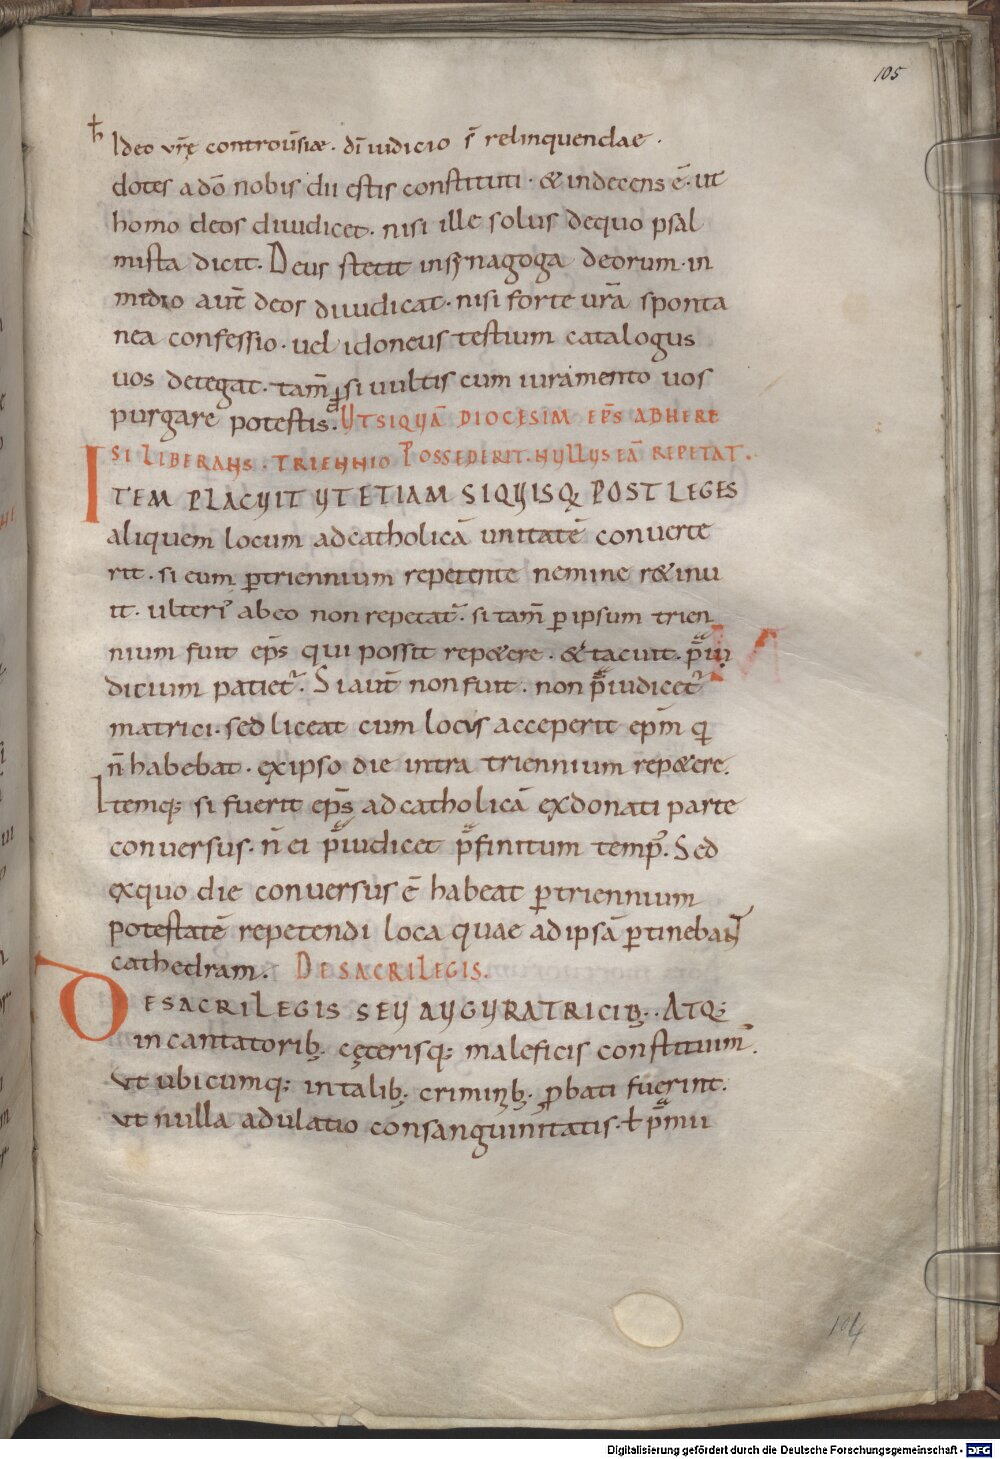 105
ħ Ideo vr̄ę controu̅siæ · dī iudicio s̄ relinquendae ·
dotes a dō nobis dii estis constituti · & indecens ē · ut
homo deos diiudicet · nisi ille solus dequo psal
mista dicit · Deus stetit insynagoga deorum · in
medio aut̄ deos diiudicat · nisi forte urā sponta
nea confessio · uel idoneus testium catalogus
uos detegat · tam̄ si uultis cum iuramento uos
purgare potestis · UT SI QUĀ DIOCESIM EPS̄ AB HERE
SI LIBERANS · TRIENNIO POSSEDERIT · NULLUS EĀ REPETAT ·
ITEM PLACUIT UT ETIAM SI QUISQ; POST LEGES
aliquem locum adcatholicā unitatē conuerte
rit · si eum ꝑtriennium repetente nemine r&inu
it · ulteri᾿ abeo non repetat᾿ · si tam̄ ꝑ ipsum trien
nium fuit ep̄s qui possit rep&ere · & tacuit · p̄iu
dicium patiet᾿ · Si aut̄ non fuit · non p̄iudicet᾿
matrici · sed liceat cum locus acceperit ep̄m q
n̄ habebat · exipso die intra triennium rep&ere.
Itemq; si fuerit ep̄s adcatholicā exdonati parte
conuersus · n̄ ei p̄iudicet p̄finitum temp᾿ · Sed
exquo die conuersus ē habeat ꝑtriennium
potestatē repetendi loca quae adipsā ꝑtinebant
cathedram · DE SACRILEGIS ·
DE SACRILEGIS SEU AUGURATRICIB; · ATQ;
incantatorib; cęterisq; maleficis constituim᾿ ·
ut ubicumq; intalib; criminib; ꝓbati fuerint ·
ut nulla adulatio consanguinitatis · ł p̄miu
104
Digitalisierung gefördert durch die Deutsche Forschungsgemeinschaft - DFG